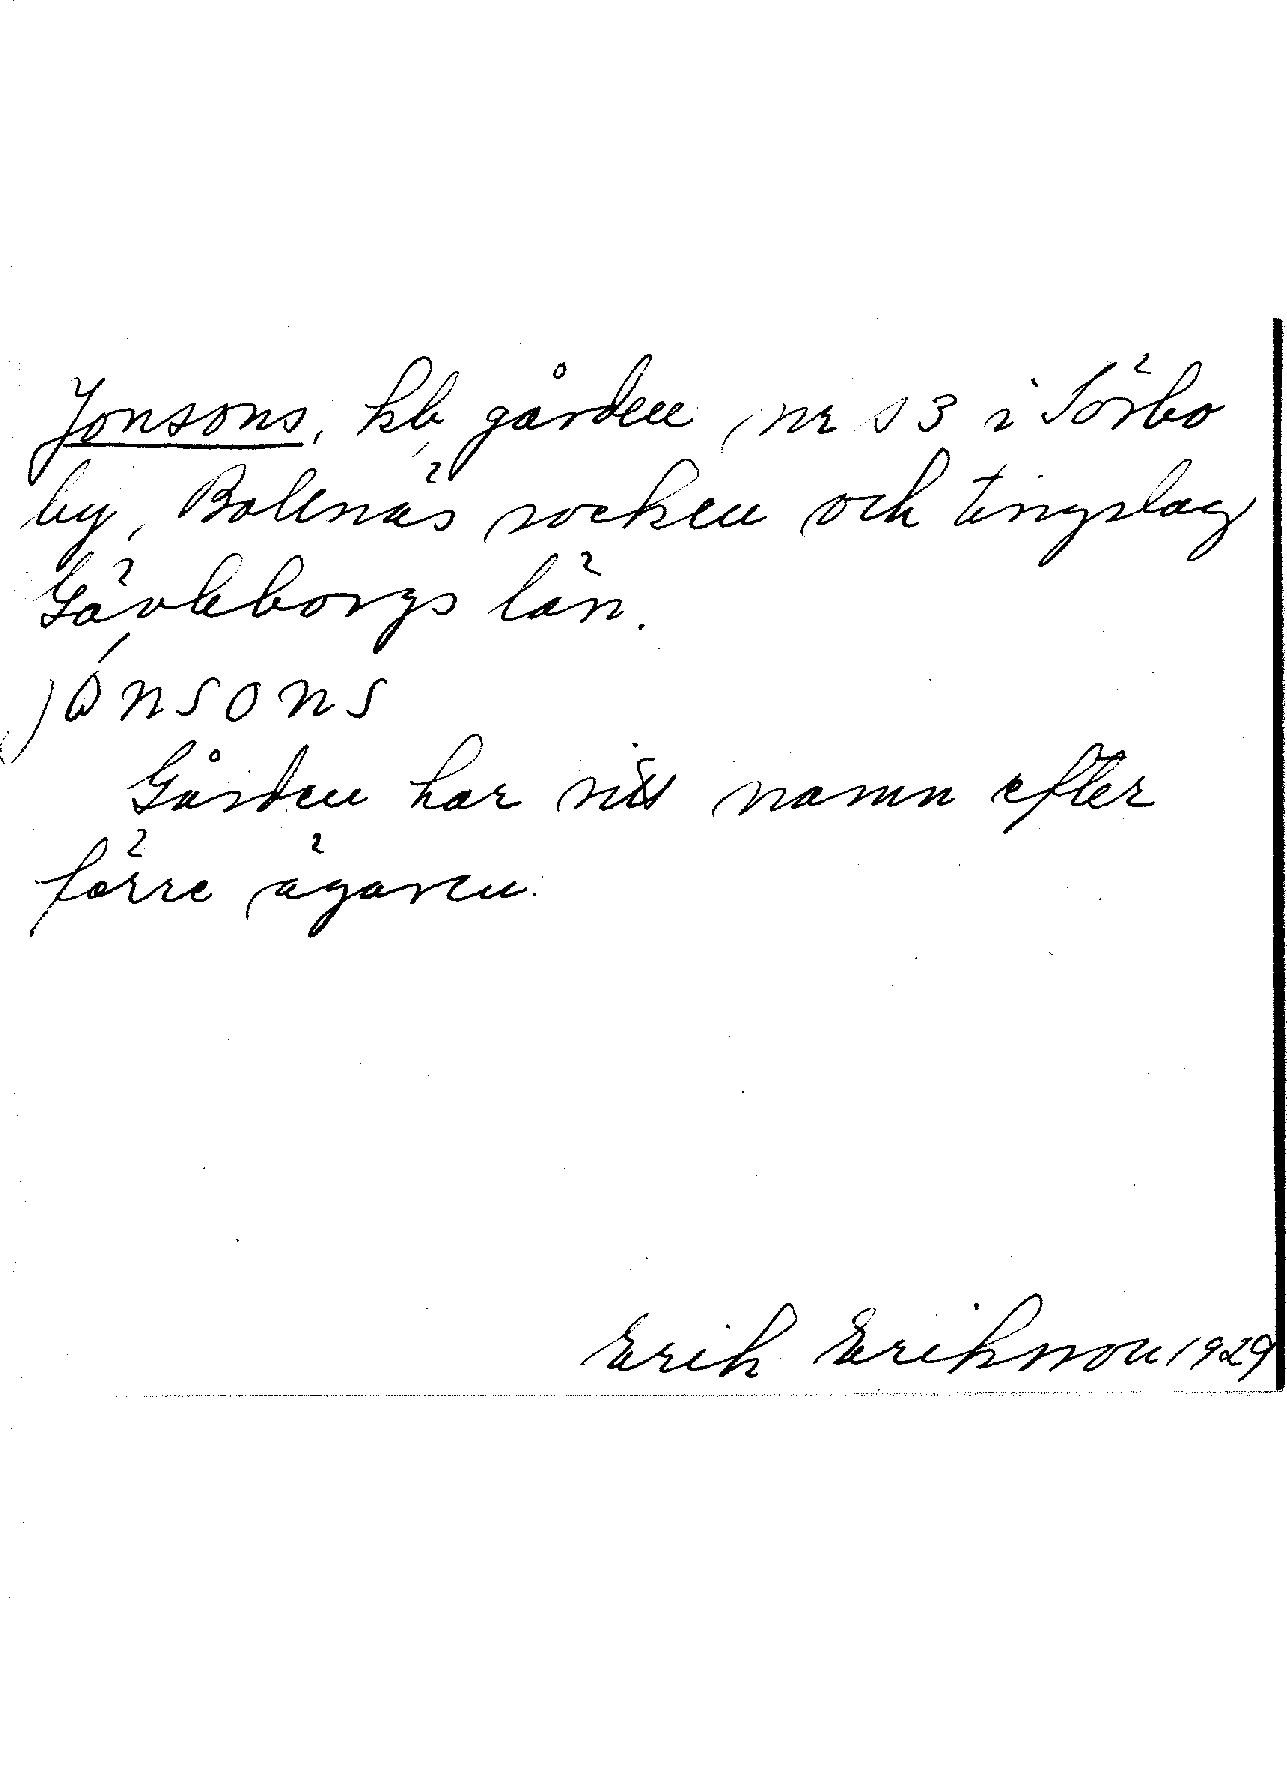 Jonsons, hb, gården, nr 13 i Sörbo
by, Bollnäs socken och tingslag
Gävleborgs län.
jónsons
Gården har sitt namn efter
förre ägaren.
Erik Eriksson 1929